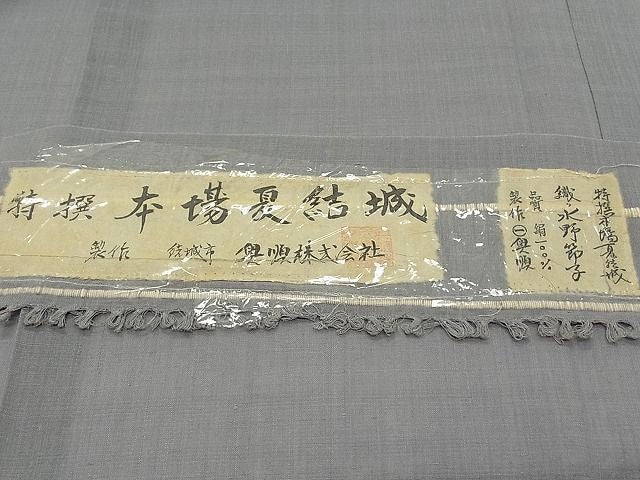 特撰 本場夏結城
製作 結城市 奥順株式会社
特撰本場夏結城
織 水野節子
品質 絹一〇〇%
製作 奥順